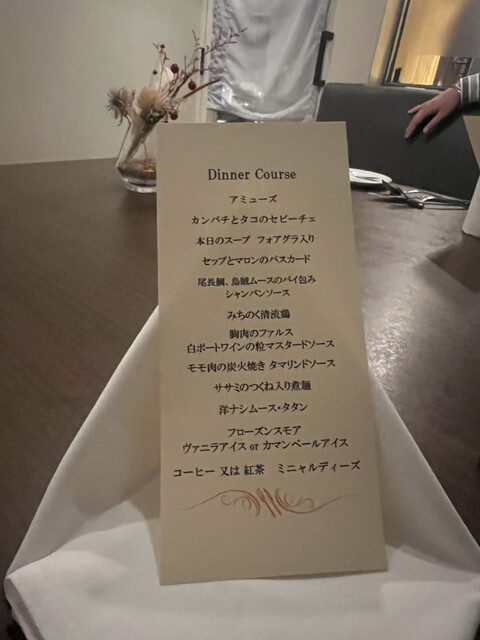 Dinner Course
アミューズ
カンパチとタコのセビーチェ
本日のスープ フォアグラ入り
セップとマロンのパスカード
尾長鯛、烏賊ムースのパイ包み
シャンパンソース
みちのく清流鶏
胸肉のファルス
白ポートワインの粒マスタードソース
モモ肉の炭火焼き タマリンドソース
ササミのつくね入り煮麺
洋ナシムース・タタン
フローズンスモア
ヴァニラアイス or カマンベールアイス
コーヒー 又は 紅茶 ミニャルディーズ